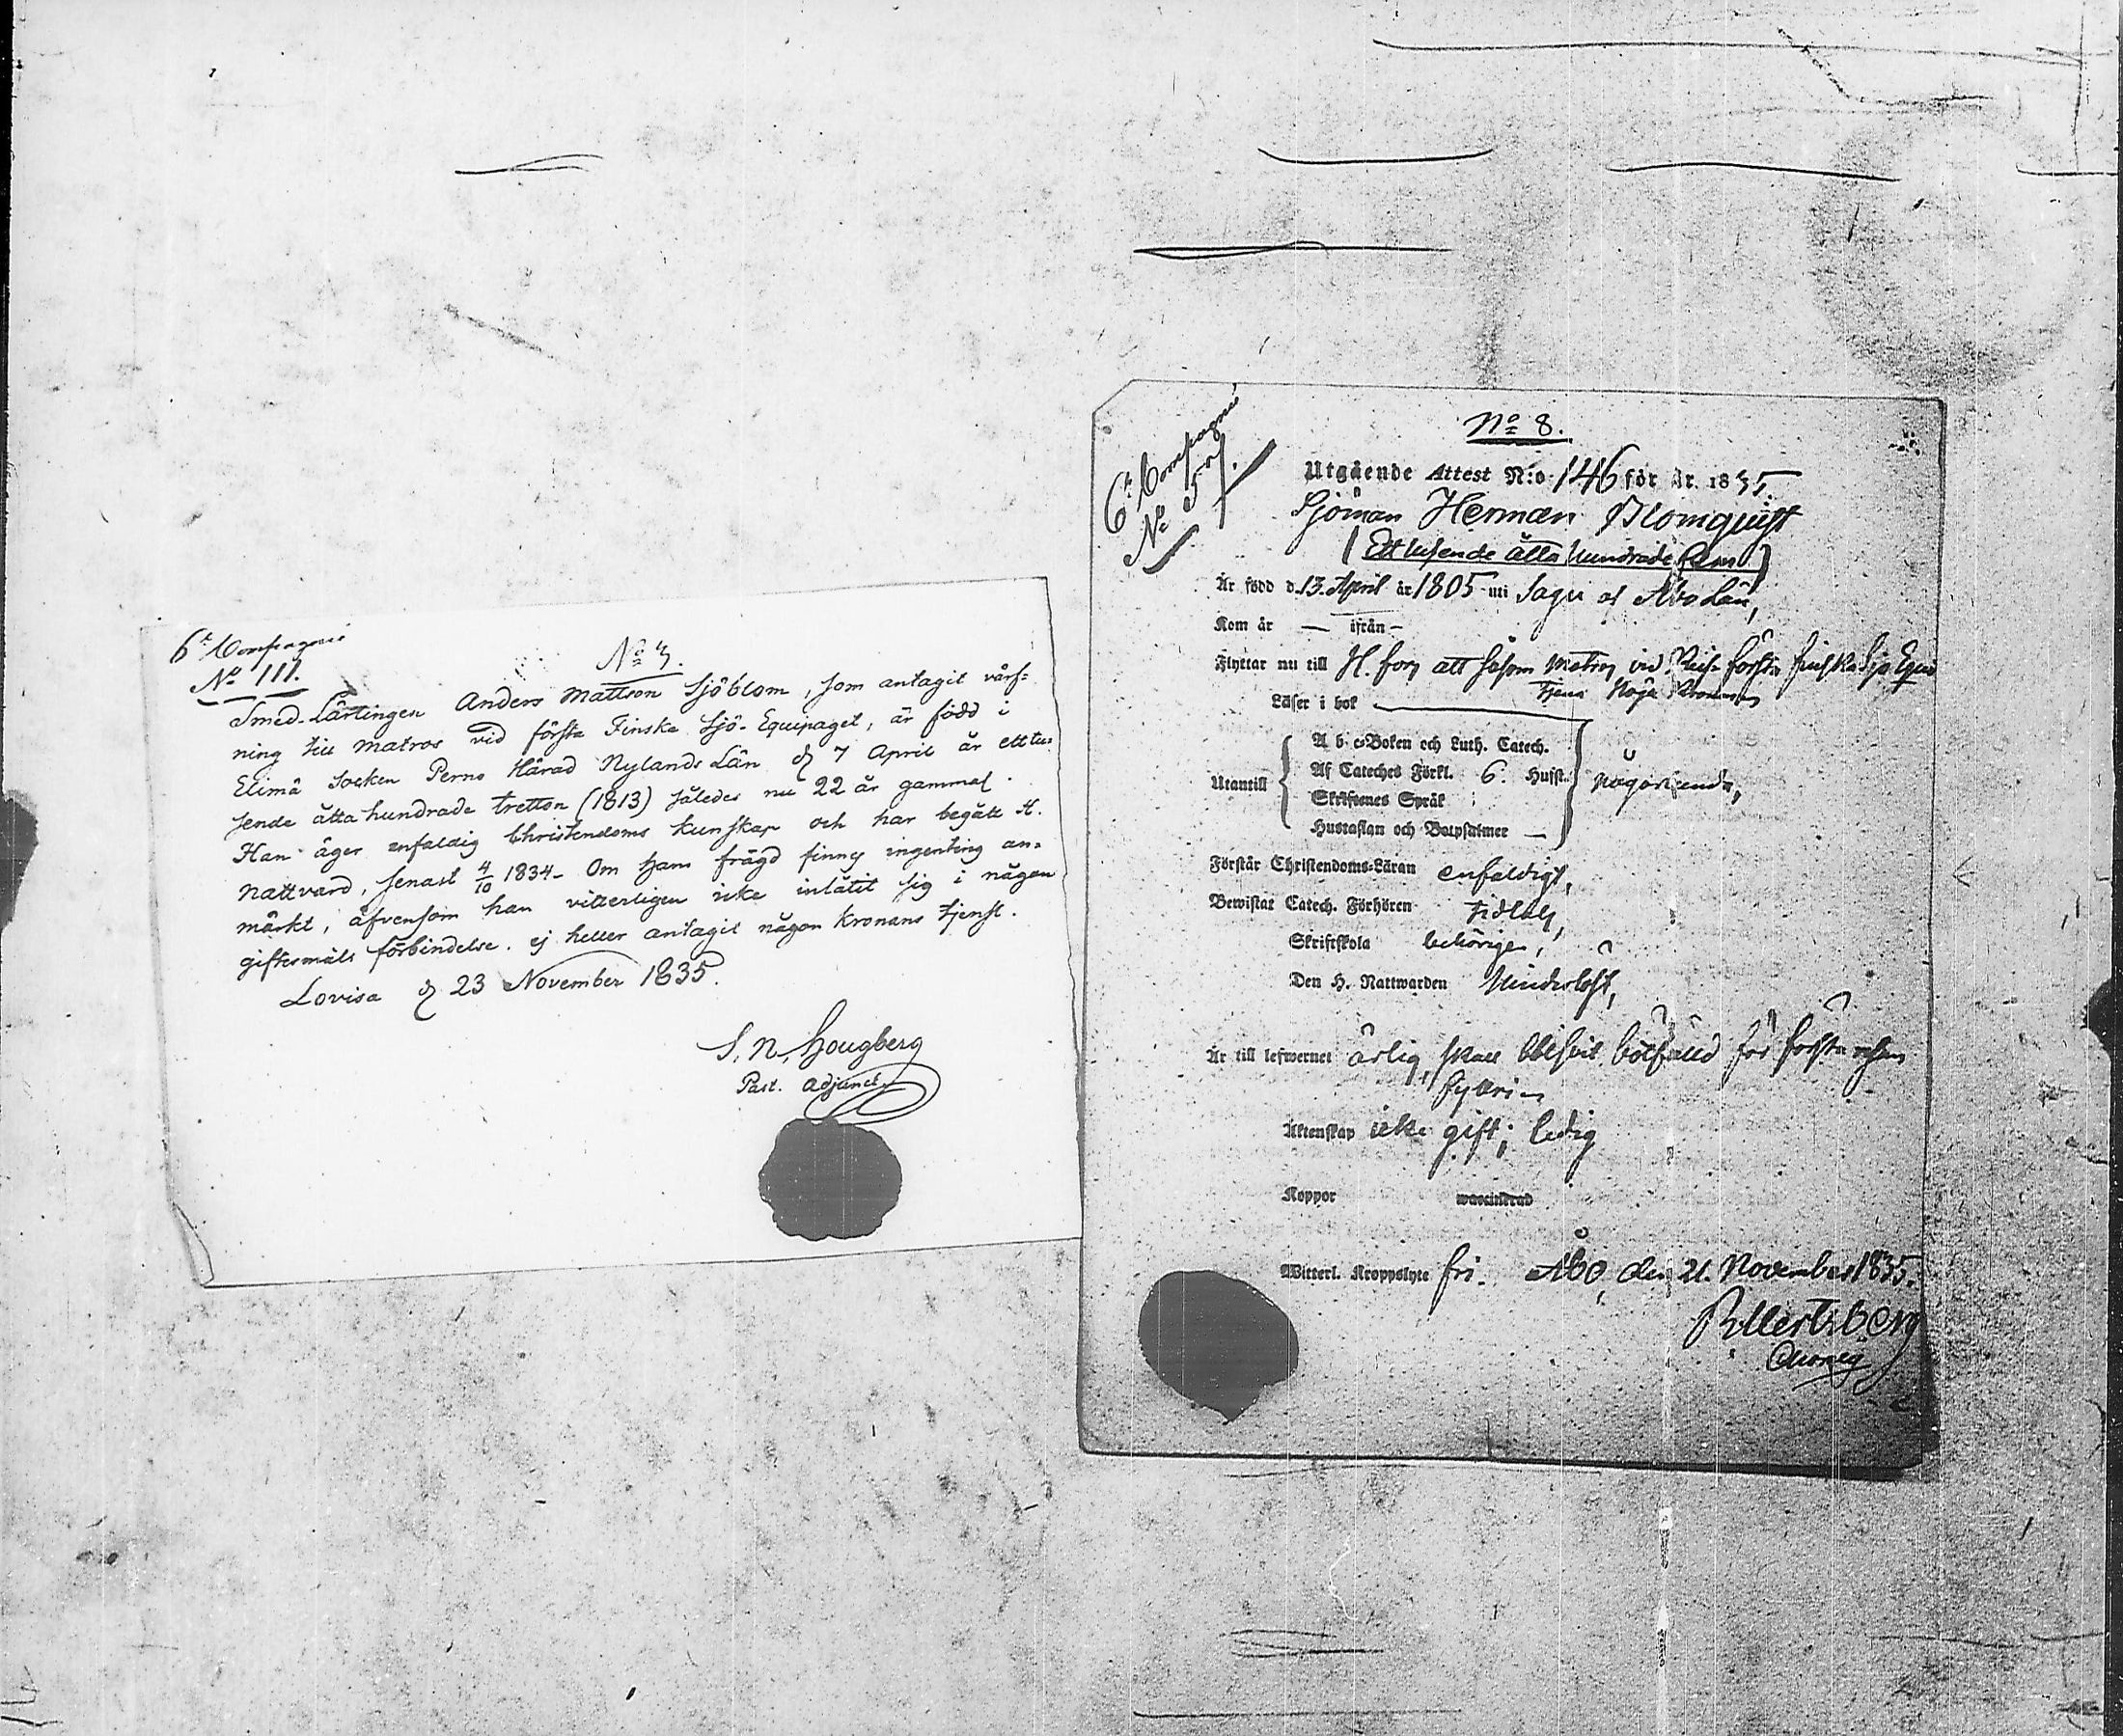 6:e Compagnie
No 111.
No 3.
Smed-Lärlingen Anders Mattson Sjöblom, som antagit värf-
ning till matros vid första Finska Sjö-Equipaget, är född i
Elimä Socken Perno Härad Nylands Län d 7 April år ett tu-
sende åtta hundrade tretton (1813) således nu 22 år gammal.
Han äger enfaldig Christendoms kunskap och har begått H.
nattvard, senast 4/10 1834. Om hans frägd finns ingenting an-
märkt, äfvensom han vitterligen icke inlåtit sig i någon
giftermåls förbindelse, ej heller antagit någon kronans tjenst.
Lovisa d 23 November 1835.
S. N. Hougberg
Past. Adjunct.
6:e Compagnie
No 57.
No 8.
Utgående Attest N:o 146 för År. 1835
Sjöman Herman Blomquist
(Ett tusende åtta hundrade fem)
Är född d. 13. April år 1805 uti Sagu af Åbo Län,
Kom år — ifrån —
Flyttar nu till H. fors att såsom matros vid första finska Sjö Equi
tjena Höga Kronan
Läser i bok
Utantill
A b c-Boken och Luth. Catech.
Af Cateches Förkl. 6. Hufst.
Skriftenes Språk
Hustaflan och Botpsalmer —
någorlunda,
Förstår Christendoms-Läran enfaldigt,
Bewistat Catech. Förhören
Skriftskola behörigen,
Den H. Nattwarden hinderlöst,
Är till lefwernet ärlig, skall blifvit bötfälld för första resan
fylleri
Äktenskap icke gift; ledig
Koppor waccinerad
Witterl. Kroppslyte fri. Åbo, den 21. November 1835.